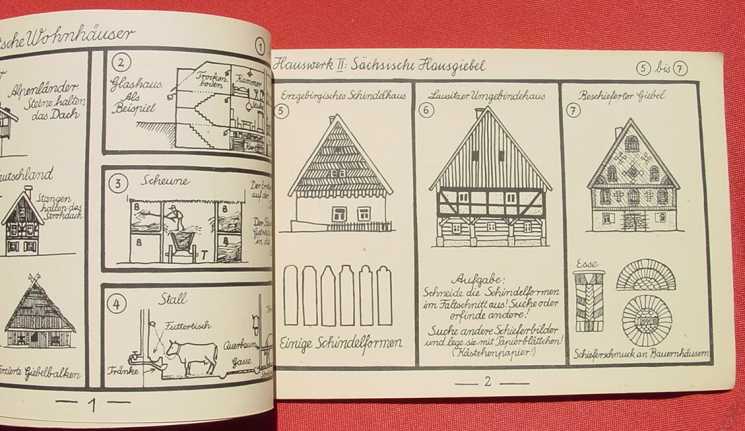 Wohnhäuser
Alpenländer
Steine halten
das Dach
Stangen
halten das
Strohdach
Giebelbalken
1
②
①
Glashaus
als
Beispiel
Trocken
boden
Kammer
③
Scheune
B
B
B
B
T
④
Stall
Futtertisch
Querbaum
Gasse
Tränke
Hauswerk II: Sächsische Hausgiebel
⑤ bis ⑦
⑤
Erzgebirgisches Schindelhaus
Einige Schindelformen
⑥
Lausitzer Umgebindehaus
Aufgabe:
Schneide die Schindelformen
im Faltschnitt aus! Suche oder
erfinde andere!
Suche andere Schieferbilder
und lege sie mit Papierblättchen!
(Kästchenpapier!)
⑦
Beschieferter Giebel
Esse
Schieferschmuck an Bauernhäusern
2